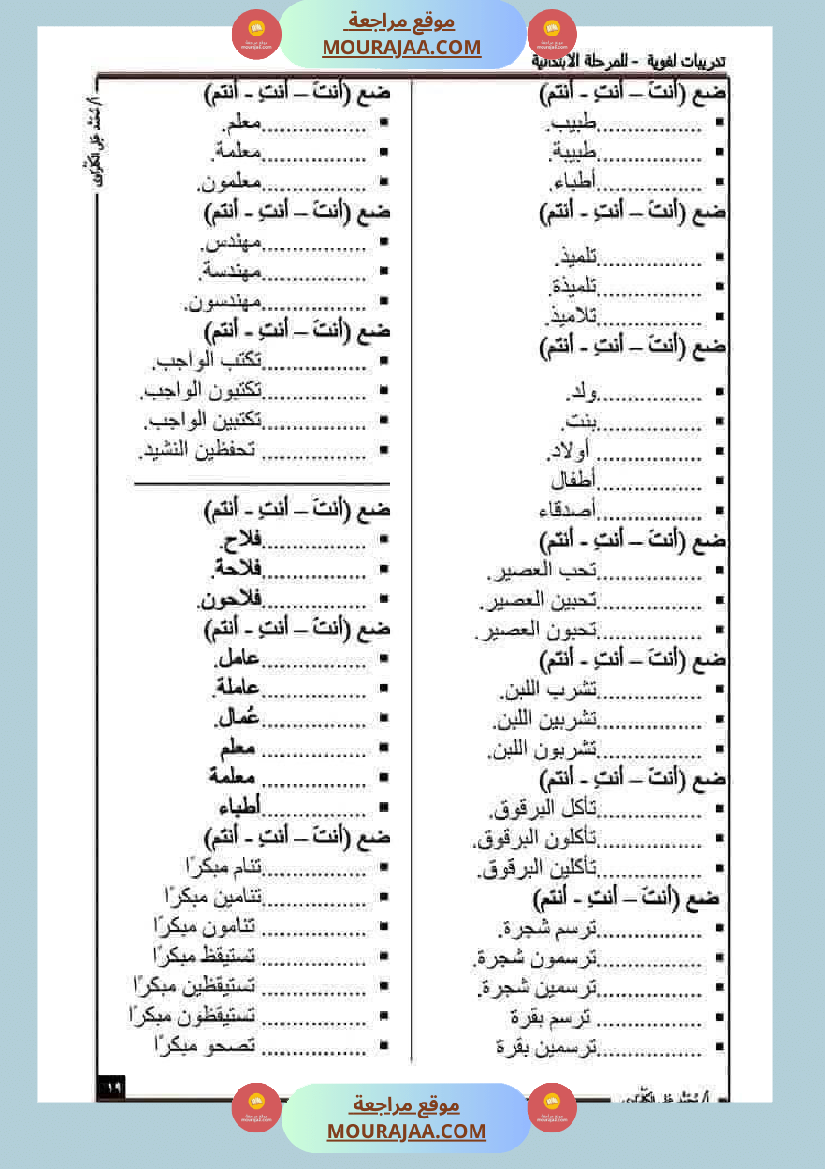 موقع مراجعة
MOURAJAA.COM
تدريبات لغوية - للمرحلة الابتدائية
ضع (أنتَ – أنتِ - أنتم)
.................طبيب.
.................طبيبة.
.................أطباء.
ضع (أنتَ – أنتِ - أنتم)
.................تلميذ.
.................تلميذة.
.................تلاميذ.
ضع (أنتَ – أنتِ - أنتم)
.................ولد.
.................بنت.
................. أولاد.
.................أطفال
.................أصدقاء
ضع (أنتَ – أنتِ - أنتم)
.................تحب العصير.
.................تحبين العصير.
.................تحبون العصير.
ضع (أنتَ – أنتِ - أنتم)
.................تشرب اللبن.
.................تشربين اللبن.
.................تشربون اللبن.
ضع (أنتَ – أنتِ - أنتم)
.................تأكل البرقوق.
.................تأكلون البرقوق.
.................تأكلين البرقوق.
ضع (أنتَ – أنتِ - أنتم)
.................ترسم شجرة.
.................ترسمون شجرة.
.................ترسمين شجرة.
................. ترسم بقرة
.................ترسمين بقرة
ضع (أنتَ – أنتِ - أنتم)
.................معلم.
.................معلمة.
.................معلمون.
ضع (أنتَ – أنتِ - أنتم)
.................مهندس.
.................مهندسة.
.................مهندسون.
ضع (أنتَ – أنتِ - أنتم)
.................تكتب الواجب.
.................تكتبون الواجب.
.................تكتبين الواجب.
................. تحفظين النشيد.
ضع (أنتَ – أنتِ - أنتم)
.................فلاح.
.................فلاحة.
.................فلاحون.
ضع (أنتَ – أنتِ - أنتم)
.................عامل.
.................عاملة.
.................عُمال.
................. معلم
................. معلمة
.................أطباء
ضع (أنتَ – أنتِ - أنتم)
.................تنام مبكرًا
.................تنامين مبكرًا
................. تنامون مبكرًا
................. تستيقظ مبكرًا
................. تستيقظين مبكرًا
................. تستيقظون مبكرًا
................. تصحو مبكرًا
١٩
موقع مراجعة
MOURAJAA.COM